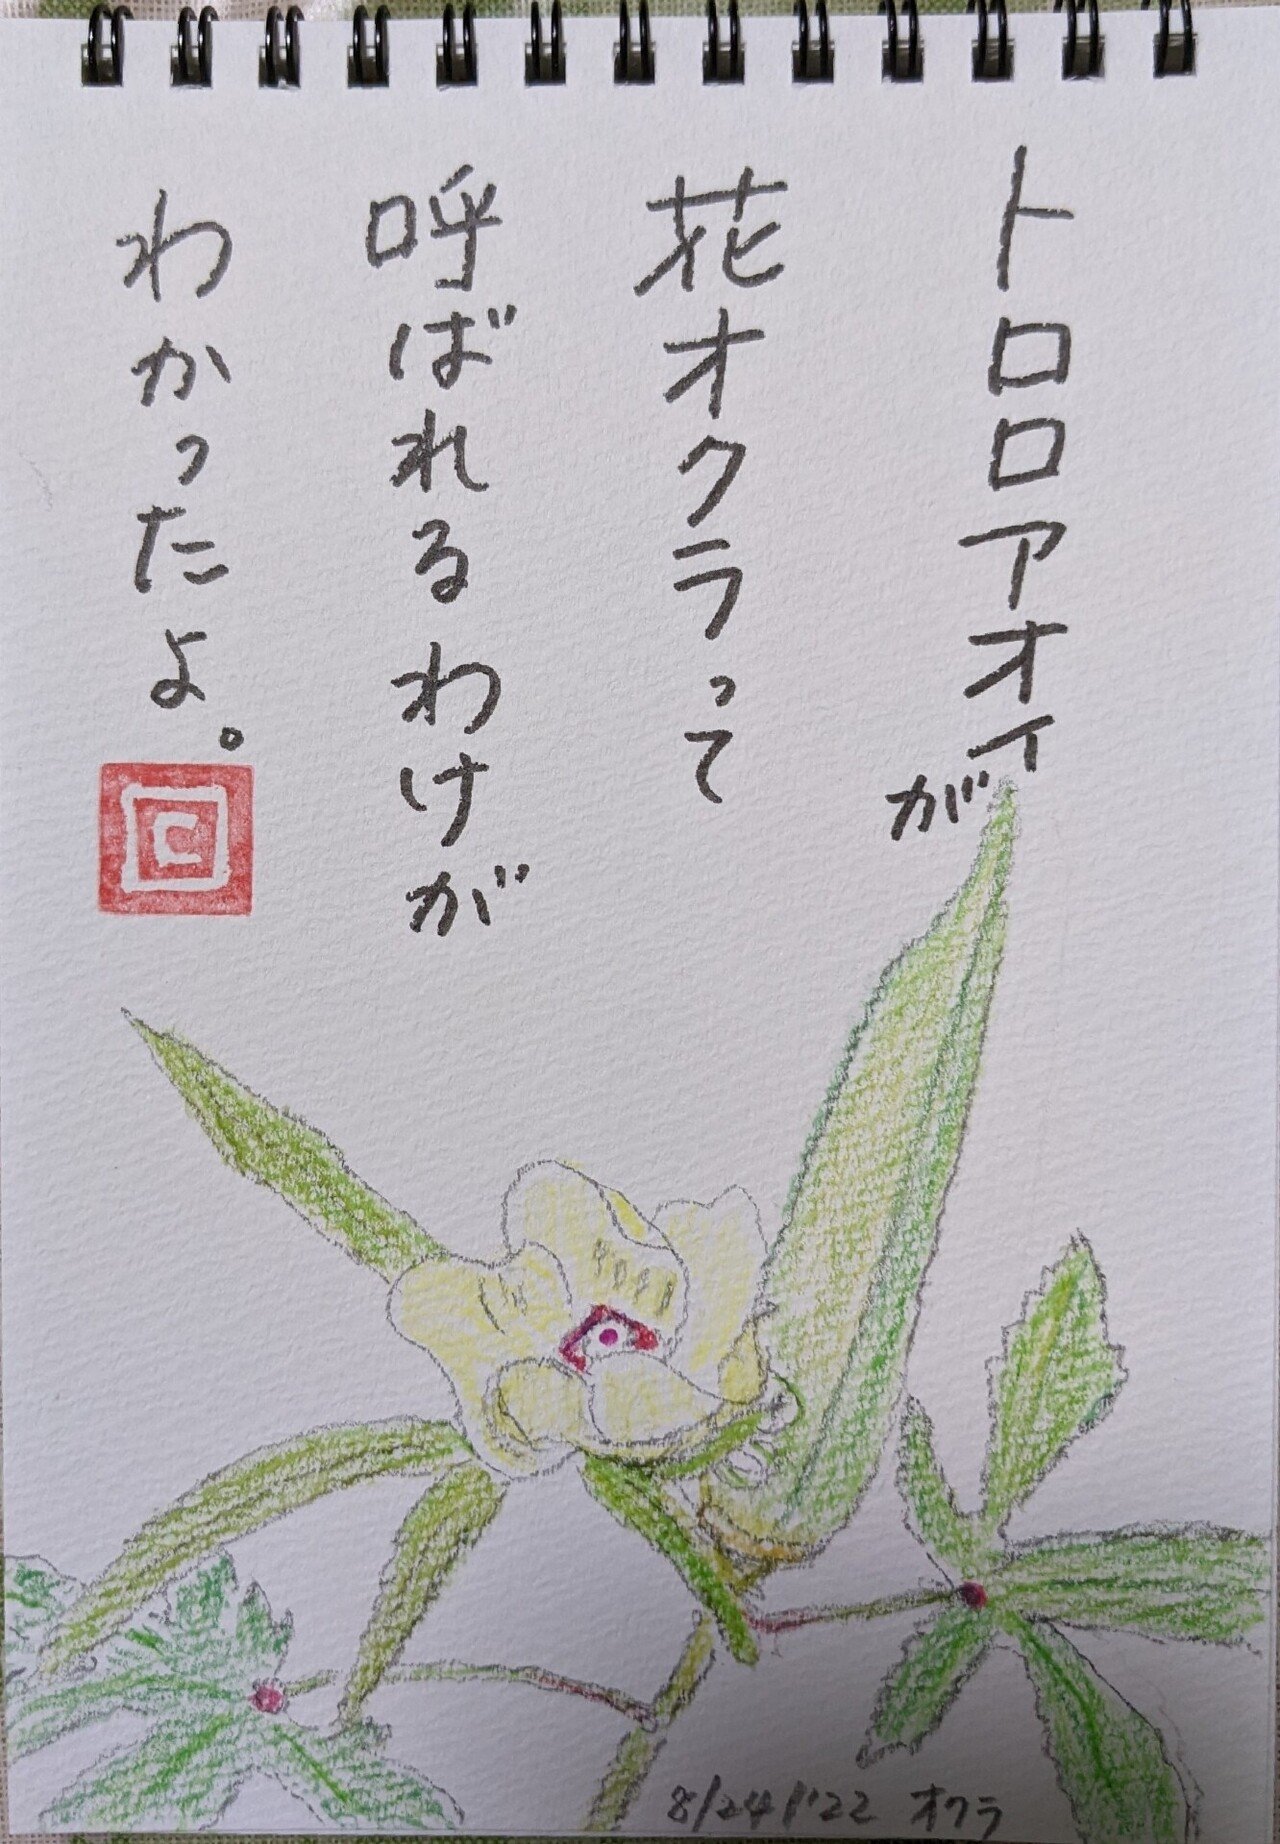 トロロアオイが
花オクラって
呼ばれるわけが
わかったよ。
C
8/24/'22 オクラ